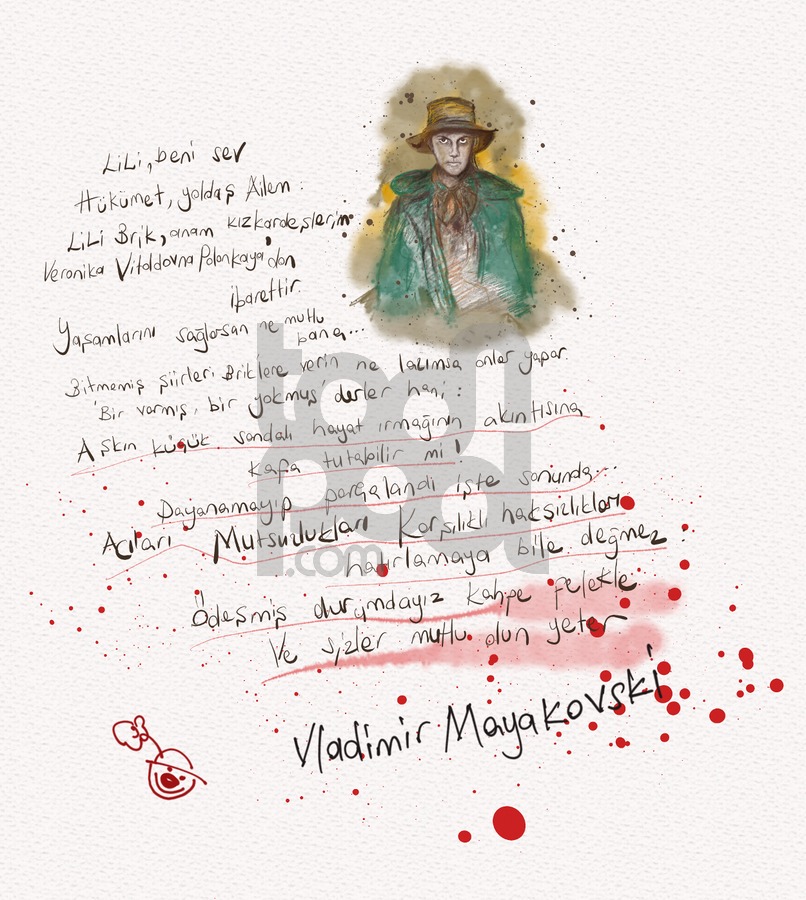 Lili, beni sev
Hükümet, yoldaş Ailem :
Lili Brik, anam kızkardeşlerim
Veronika Vitoldovna Polonkaya'dan
ibarettir.
Yaşamlarını sağlarsan ne mutlu
bana...
Bitmemiş şiirleri Brik'lere verin ne lazımsa onlar yapar.
'Bir varmış, bir yokmuş derler hani :
Aşkın küçük sandalı hayat ırmağının akıntısına
kafa tutabilir mi !
Dayanamayıp parçalandı işte sonunda...
Acıları Mutsuzlukları Karşılıklı haksızlıkları
hatırlamaya bile değmez :
Ödeşmiş durumdayız kahpe felekle
Ve sizler mutlu olun yeter
Vladimir Mayakovski
toonpool
.com